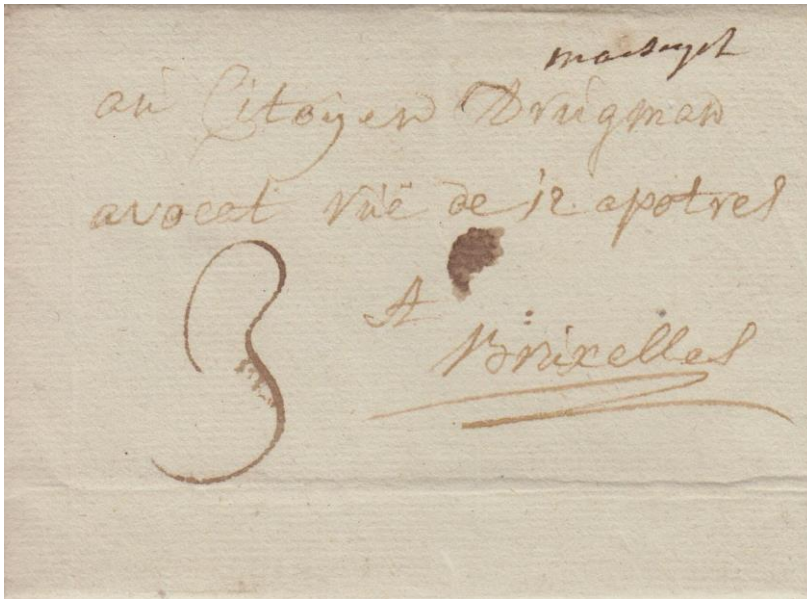 maeseyck
au Citoyen Drugman
avocat ruë de 12 apotres
3
A
Bruxelles